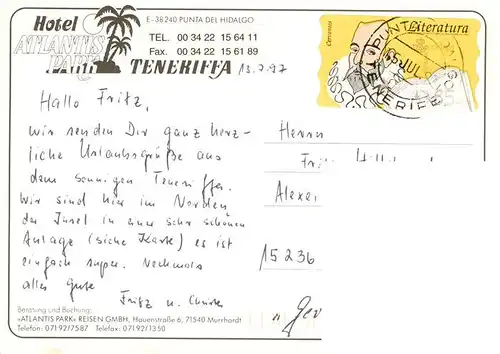 Hotel
ATLANTIS
PARK
E-38240 PUNTA DEL HIDALGO
TEL. 00 34 22 15 64 11
Fax. 00 34 22 15 61 89
TENERIFFA
13.7.97
Cervantes
Literatura
5 JUL
TENERIFE
Hallo Fritz,
wir senden Dir ganz herz-
liche Urlaubsgrüße aus
dem sonnigen Teneriffa.
Wir sind hier im Norden
der Insel in einer sehr schönen
Anlage (siehe Karte) es ist
einfach super. Nochmals
alles Gute
Fritz u.
Herrn
15236
Beratung und Buchung:
»ATLANTIS PARK« REISEN GMBH, Hauenstraße 6, 71540 Murrhardt
Telefon: 07192/7587 Telefax: 07192/1350